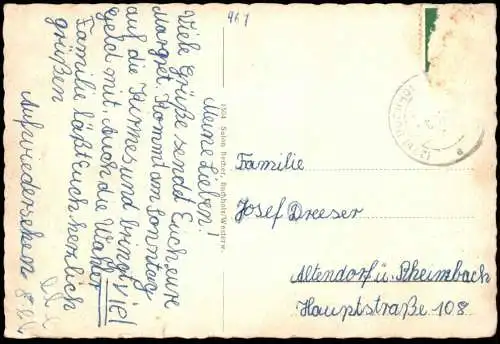 461
Meine Lieben!
Viele Grüße sendt Euch eure
Margret. Kommt am Sonntag
auf die Kirmes, und bringt viel
Geld mit. Auch die
Familie läßt euch herzlich
grüßen
Aufwiedersehen
Familie
Josef Dreeser
Altendorf ü. Rheinbach
Hauptstraße 108